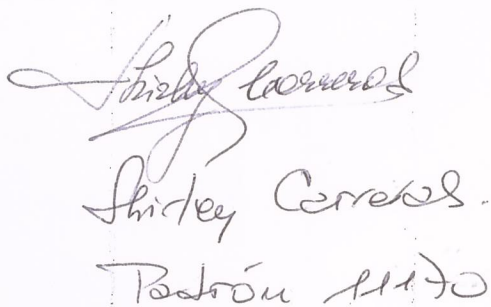 Shirley Carreras
Shirley Carreras.
Padrón 11170